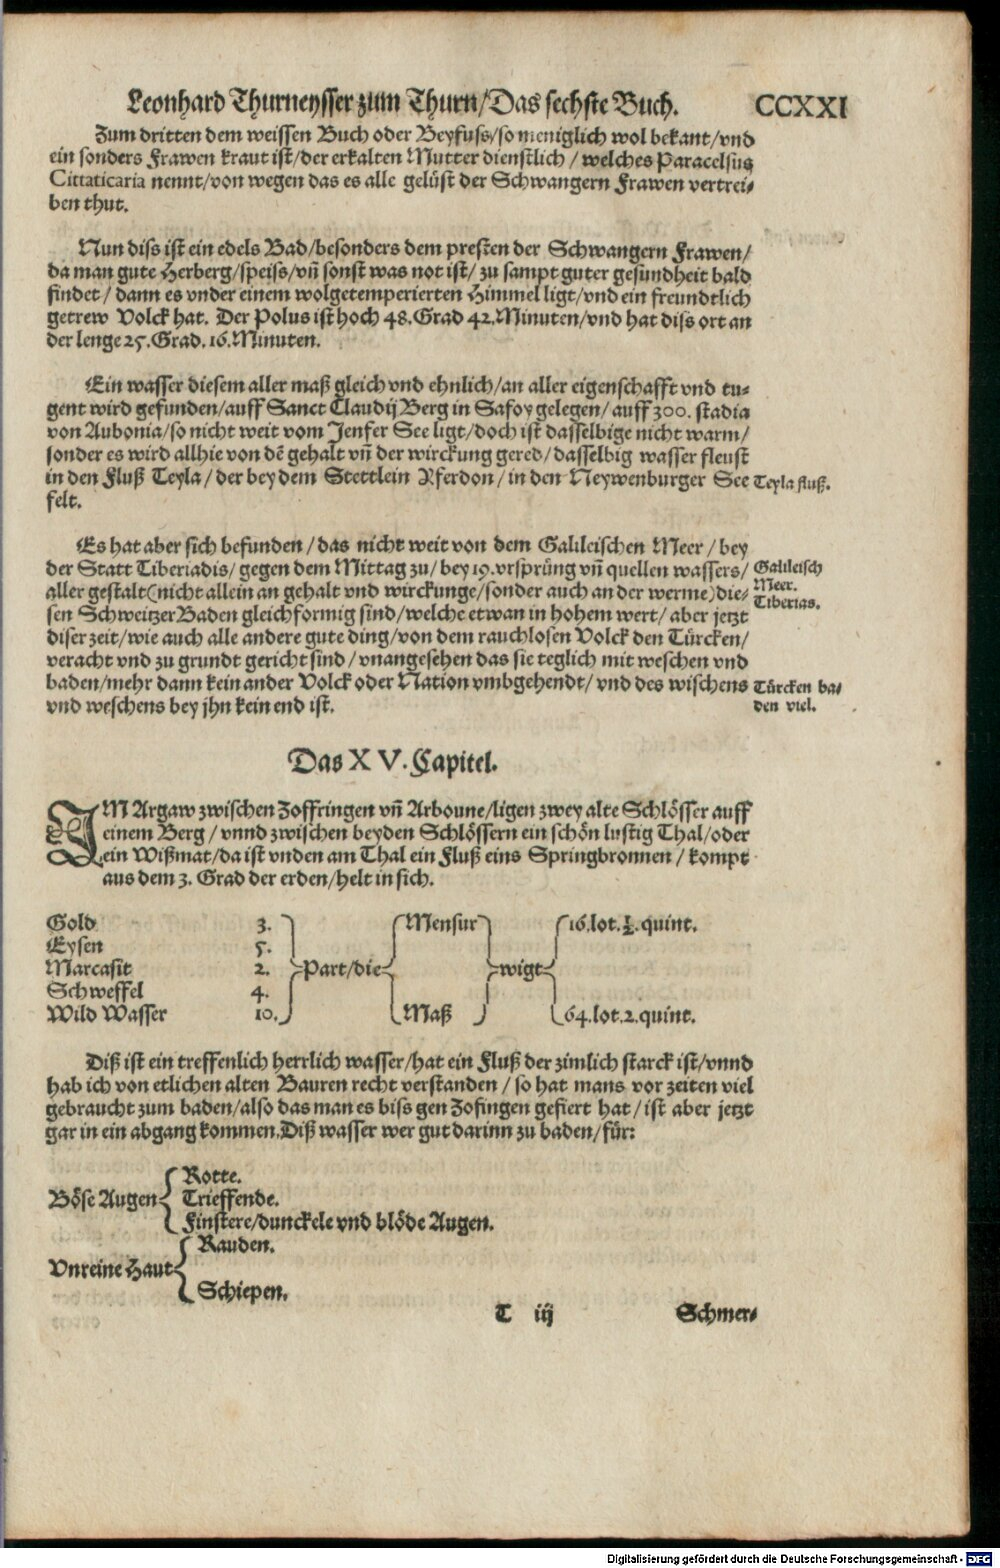 Leonhard Thurneysser zum Thurn/Das sechste Buch. CCXXI
Zum dritten dem weissen Buch oder Beyfuss/so meniglich wol bekant/vnd
ein sonders Frawen kraut ist/der erkalten Mutter dienstlich/welches Paracelsus
Cittaticaria nennt/von wegen das es alle gelüst der Schwangern Frawen vertrei-
ben thut.
Nun diss ist ein edels Bad/besonders dem presten der Schwangern Frawen/
da man gute Herberg/speiss/vñ sonst was not ist/zu sampt guter gesundheit bald
findet/dann es vnder einem wolgetemperierten Himmel ligt/vnd ein freundtlich
getrew Volck hat. Der Polus ist hoch 48. Grad 42. Minuten/vnd hat diss ort an
der lenge 25. Grad. 16. Minuten.
Ein wasser diesem aller maß gleich vnd ehnlich/an aller eigenschafft vnd tu-
gent wird gefunden/auff Sanct Claudij Berg in Safoy gelegen/auff 300. stadia
von Aubonia/so nicht weit vom Jenfer See ligt/doch ist dasselbige nicht warm/
sonder es wird allhie von dē gehalt vñ der wirckung gered/dasselbig wasser fleust
in den Fluß Teyla/der bey dem Stettlein Yferdon/in den Neywenburger See
felt.
Teyla fluß.
Es hat aber sich befunden/das nicht weit von dem Galileischen Meer/bey
der Statt Tiberiadis/gegen dem Mittag zu/bey 19. vrsprüng vñ quellen wassers/
aller gestalt (nicht allein an gehalt vnd wirckunge/sonder auch an der werme) die-
sen Schweitzer Baden gleichformig sind/welche etwan in hohem wert/aber jetzt
diser zeit/wie auch alle andere gute ding/von dem rauchlosen Volck den Türcken/
veracht vnd zu grundt gericht sind/vnangesehen das sie teglich mit weschen vnd
baden/mehr dann kein ander Volck oder Nation vmbgehendt/vnd des wischens
vnd weschens bey jhn kein end ist.
Galileisch
Meer.
Tiberias.
Türcken ba-
den viel.
Das XV. Capitel.
IM Argaw zwischen Zoffringen vñ Arboune/ligen zwey alte Schlösser auff
einem Berg/vnnd zwischen beyden Schlössern ein schön lustig Thal/oder
ein Wißmat/da ist vnden am Thal ein Fluß eins Springbronnen/kompt
aus dem 3. Grad der erden/helt in sich.
Gold 3.
Eysen 5.
Marcasit 2.
Schweffel 4.
Wild Wasser 10.
Part/die
Mensur
Maß
wigt
16. lot. ½. quint.
64. lot. 2. quint.
Diß ist ein treffenlich herrlich wasser/hat ein Fluß der zimlich starck ist/vnnd
hab ich von etlichen alten Bauren recht verstanden/so hat mans vor zeiten viel
gebraucht zum baden/also das man es biss gen Zofingen gefiert hat/ist aber jetzt
gar in ein abgang kommen. Diß wasser wer gut darinn zu baden/für:
Böse Augen
Rotte.
Trieffende.
Finstere/dunckele vnd blöde Augen.
Vnreine Haut
Rauden.
Schiepen.
T iij Schmer-
Digitalisierung gefördert durch die Deutsche Forschungsgemeinschaft - DFG